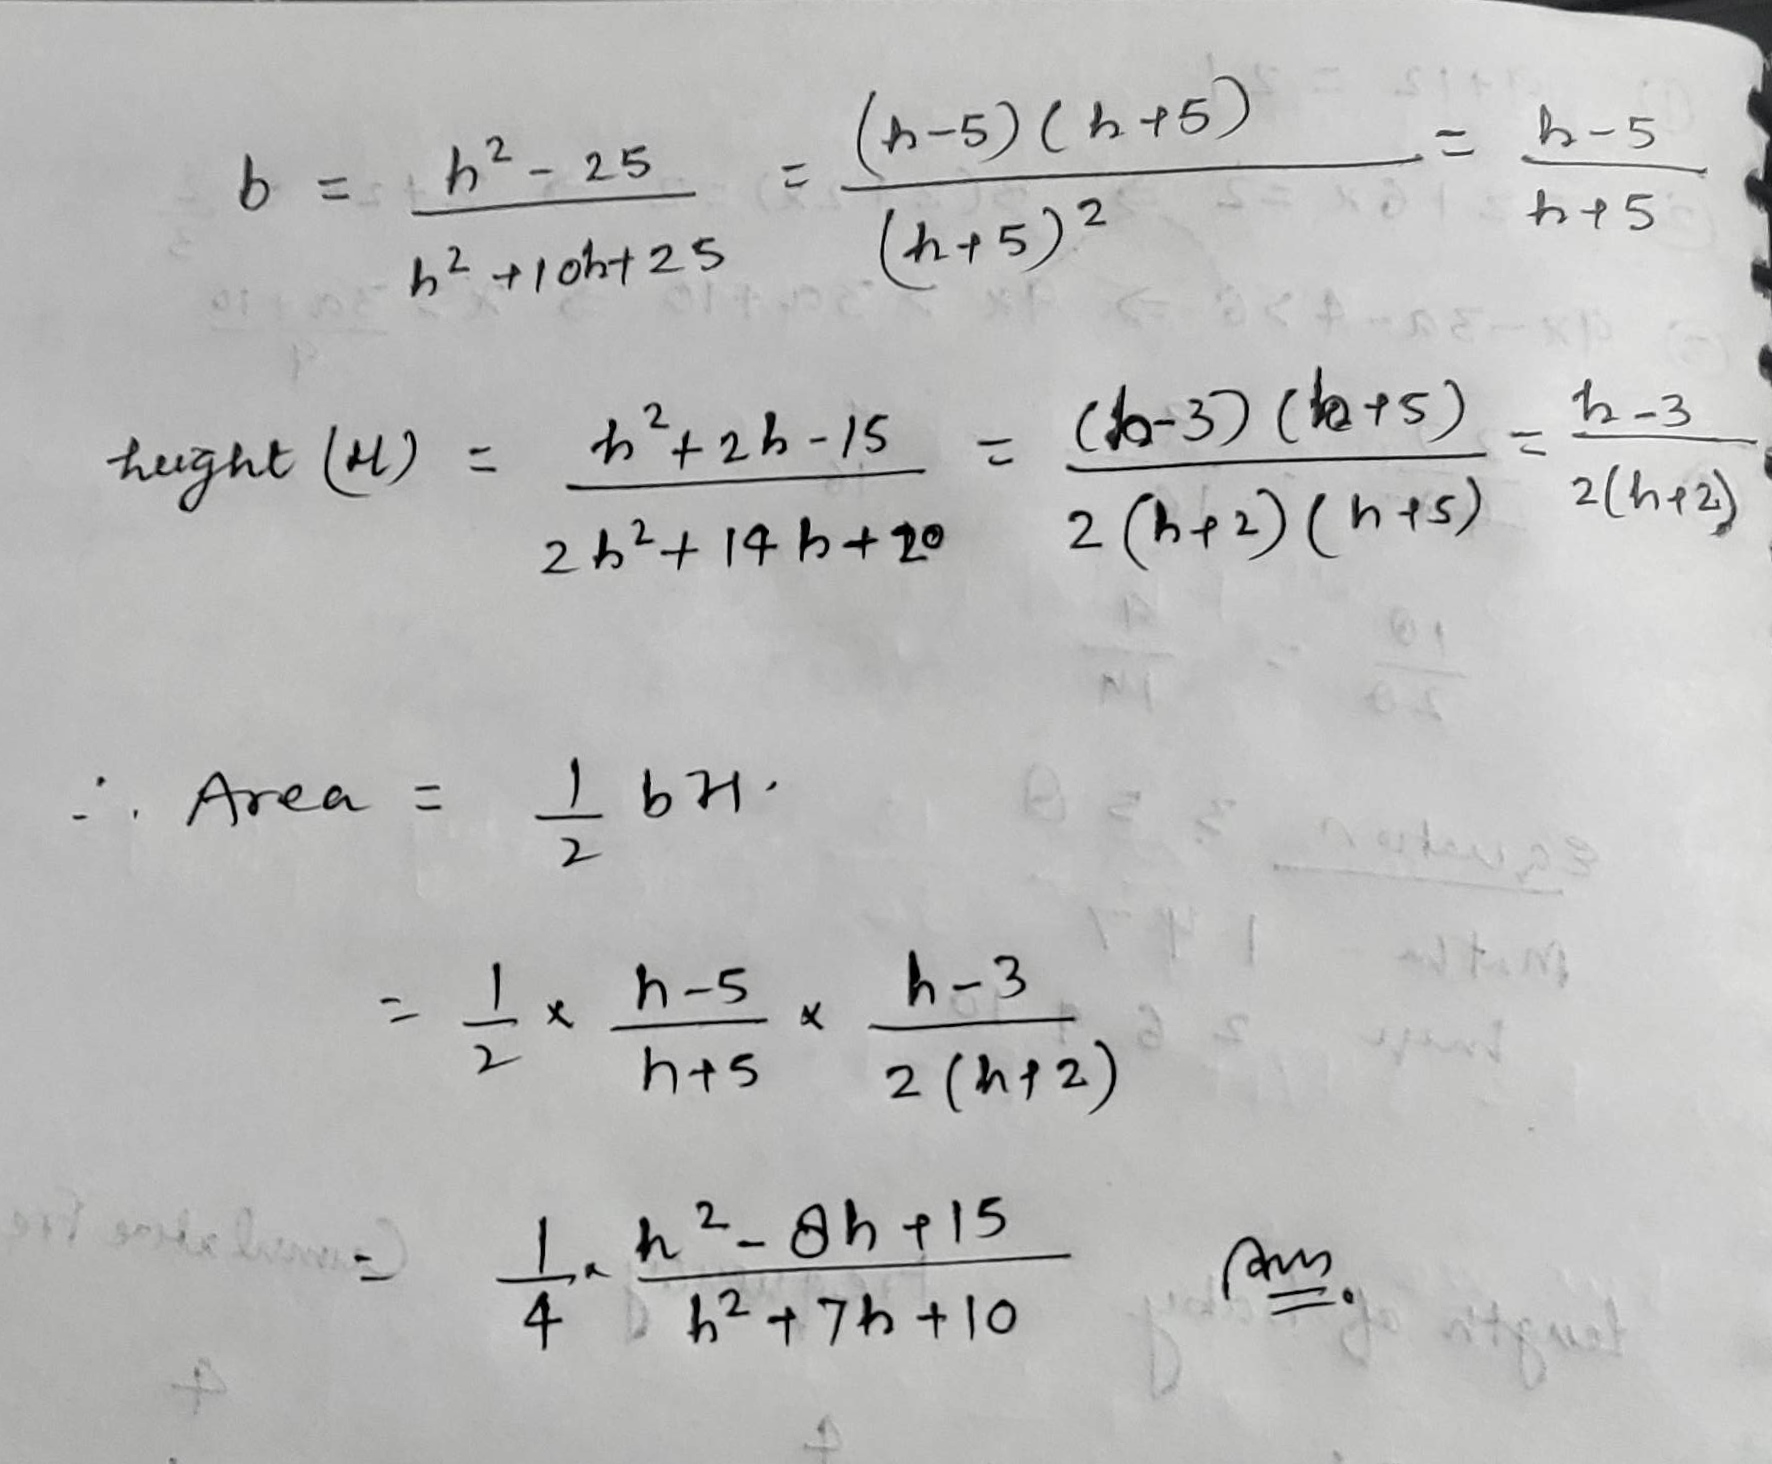 b = h²-25 / h²+10h+25 = (h-5)(h+5) / (h+5)² = h-5 / h+5
height (H) = h²+2h-15 / 2h²+14h+20 = (h-3)(h+5) / 2(h+2)(h+5) = h-3 / 2(h+2)
∴ Area = 1/2 bH.
= 1/2 × h-5 / h+5 × h-3 / 2(h+2)
= 1/4 × h²-8h+15 / h²+7h+10 Ans.